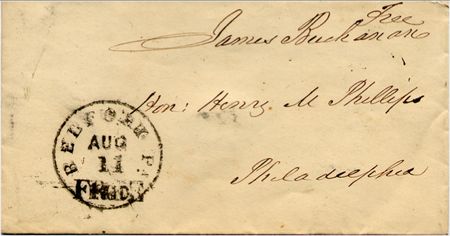 Free
James Buchanan
Hon: Henry M Phillips
Philadelphia
BEDFORD Pa
AUG
11